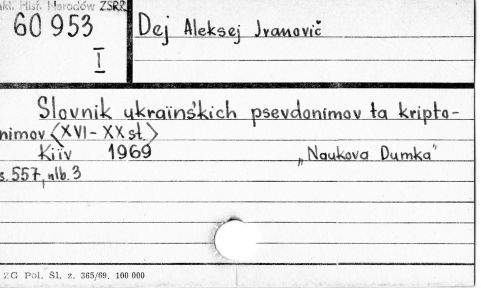 akł. Hist. Narodów ZSRR
60 953
I
Dej Aleksej Ivanovič
Slovnik ukraïnśkich psevdonimov ta kripto-
nimov <XVI-XX st.>
Kiïv 1969 „Naukova Dumka"
s. 557, nlb. 3
ZG Pol. Śl. z. 365/69. 100 000